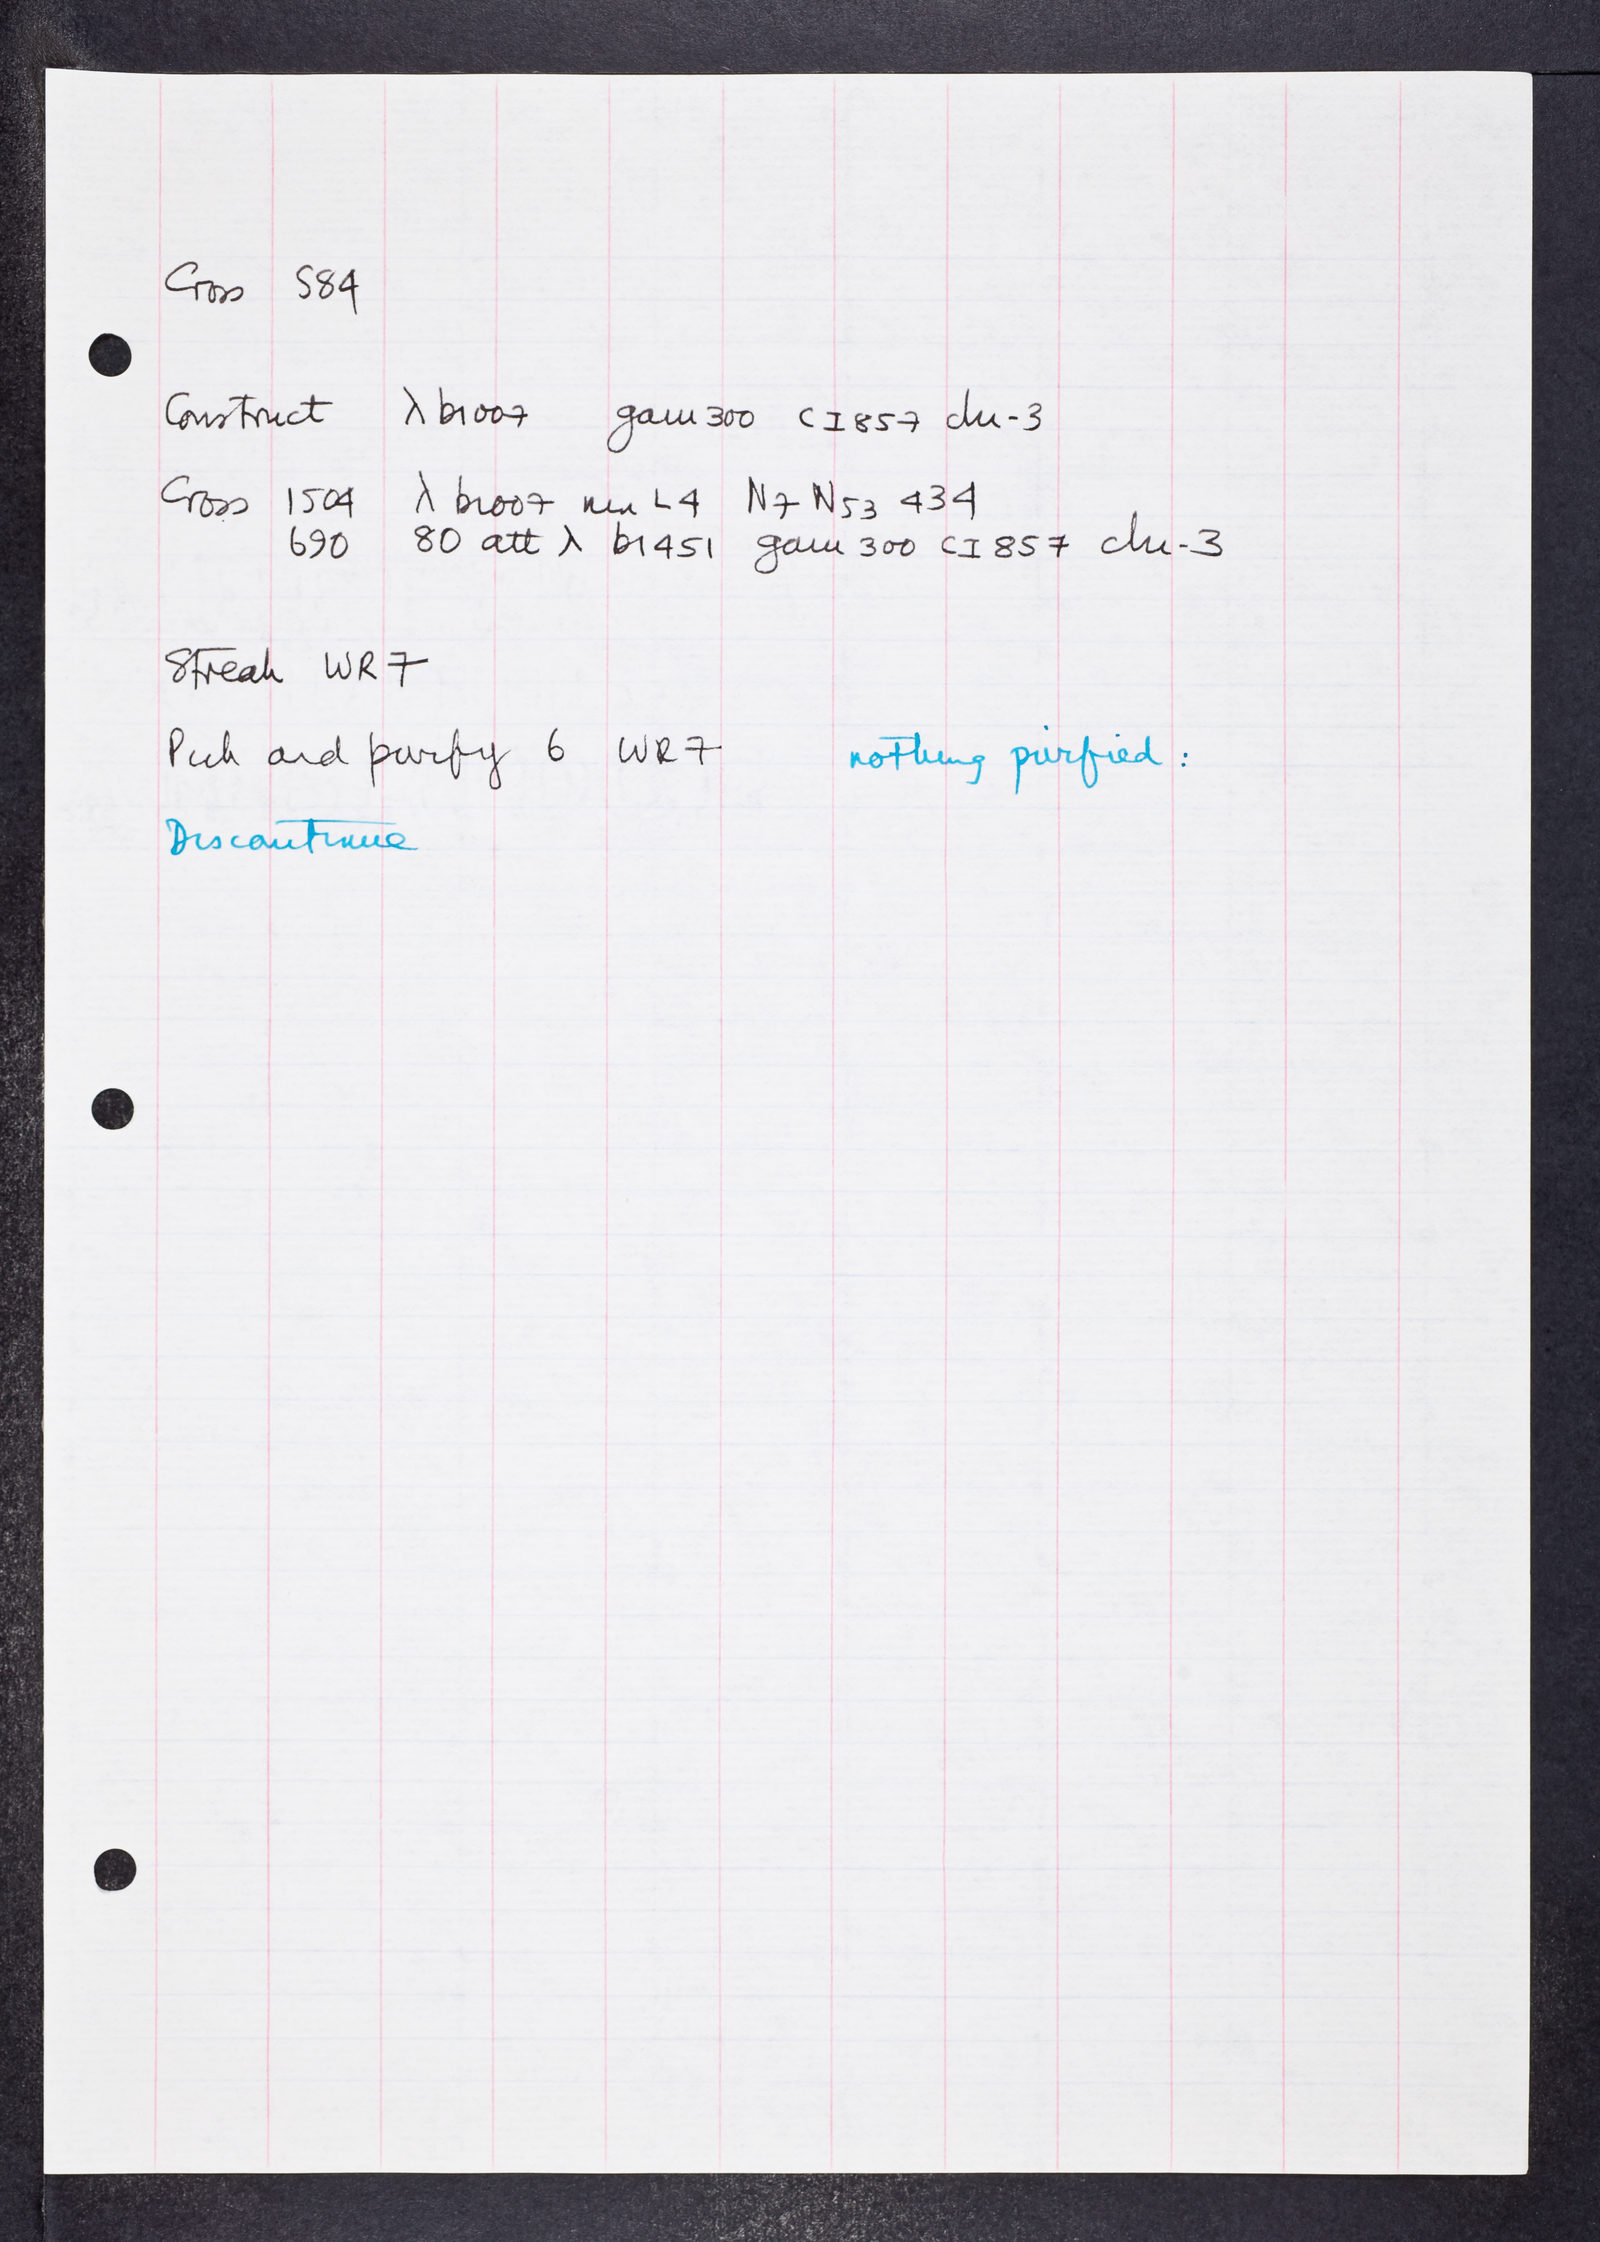 Cross 584
Construct λ b1007 gam 300 CI857 chi-3
Cross 1504 λ b1007 nin L4 N7 N53 434
690 80 att λ b1451 gam 300 CI857 chi-3
Streak WR7
Pick and purify 6 WR7 nothing purified :
Discontinue